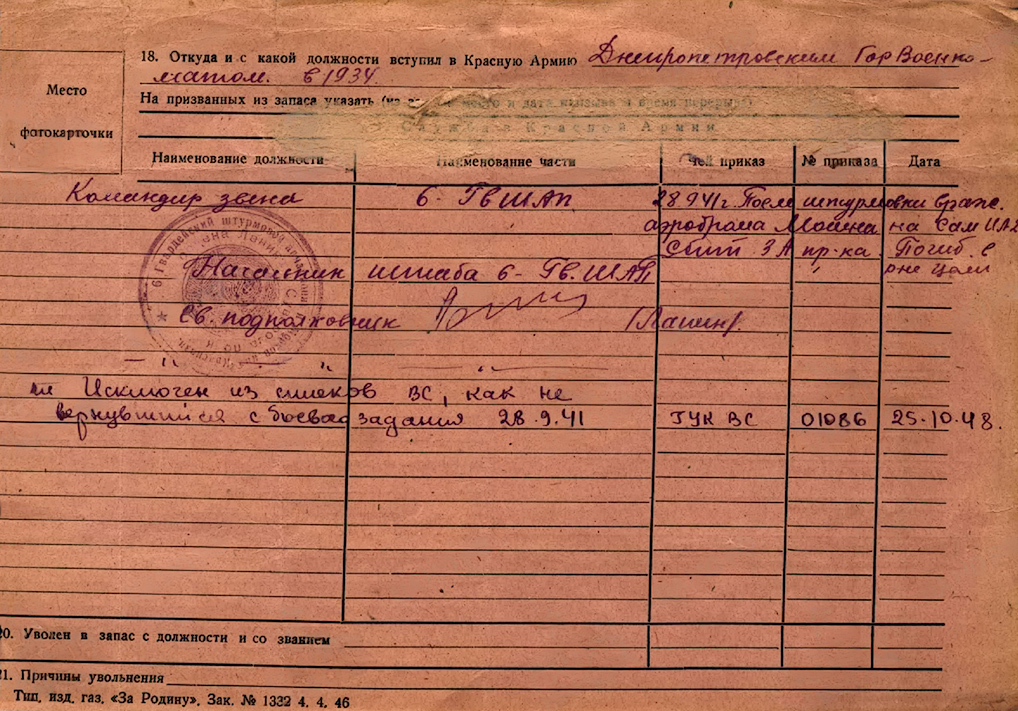 18. Откуда и с какой должности вступил в Красную Армию Днепропетровским ГорВоенко-
матом. в 1934.
Место
фотокарточки
На призванных из запаса указать место и дата призыва и время перерыва)
Служба в Красной Армии
Наименование должности Наименование части Чей приказ № приказа Дата
Командир звена 6-ГвШАП 28 9 41г. После штурмовки враж.
аэродрома на Сам ИЛ2
Сбит ЗА пр-ка. Погиб в
р-не цели
6 Гвардейский штурмовой
Начальник штаба 6-Гв.ШАП
Гв. подполковник
— " — " — " —
Исключен из списков ВС, как не
вернувшийся с боевого задания 28.9.41 ГУК ВС 01086 25.10.48.
20. Уволен в запас с должности и со званием
21. Причины увольнения
Тип. изд. газ. «За Родину». Зак. № 1332 4. 4. 46